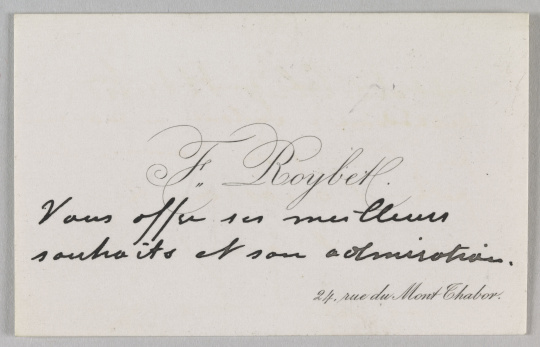 F. Roybet.
Vous offre ses meilleurs
souhaits et son admiration.
24, rue du Mont Thabor.